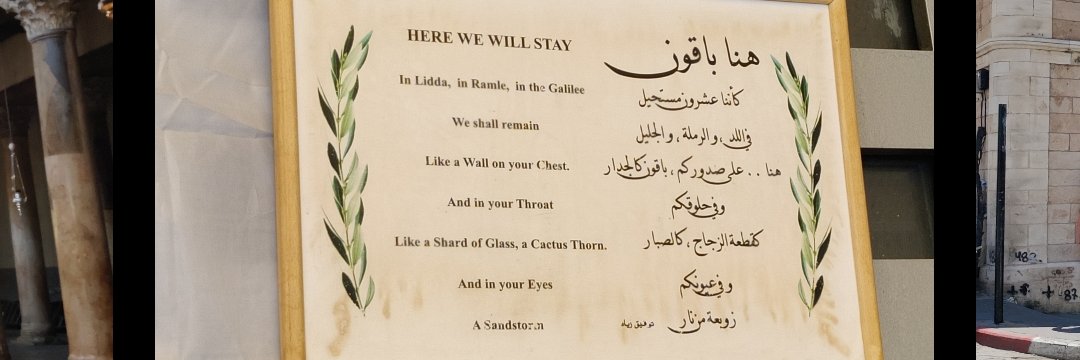 HERE WE WILL STAY
In Lidda, in Ramle, in the Galilee
We shall remain
Like a Wall on your Chest.
And in your Throat
Like a Shard of Glass, a Cactus Thorn.
And in your Eyes
A Sandstorm
هنا باقون
كأننا عشرون مستحيل
في اللد ، والرملة ، والجليل
هنا .. على صدوركم ، باقون كالجدار
وفي حلوقكم
كقطعة الزجاج ، كالصبار
وفي عيونكم
زوبعة من نار
توفيق زياد
48
48